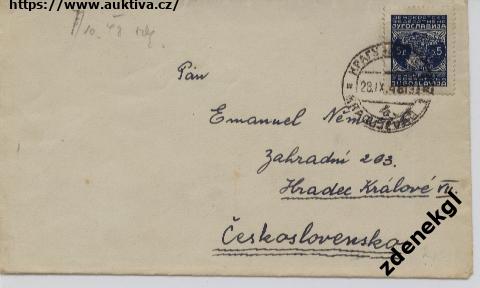 https://www.auktiva.cz/
10. 48
ЈУГОСЛАВИЈА
5 5
JUGOSLAVIJA
28.IX.48
Pán
Emanuel Něm
Zahradní 203.
Hradec Králové VII.
Československo
zdenekgl